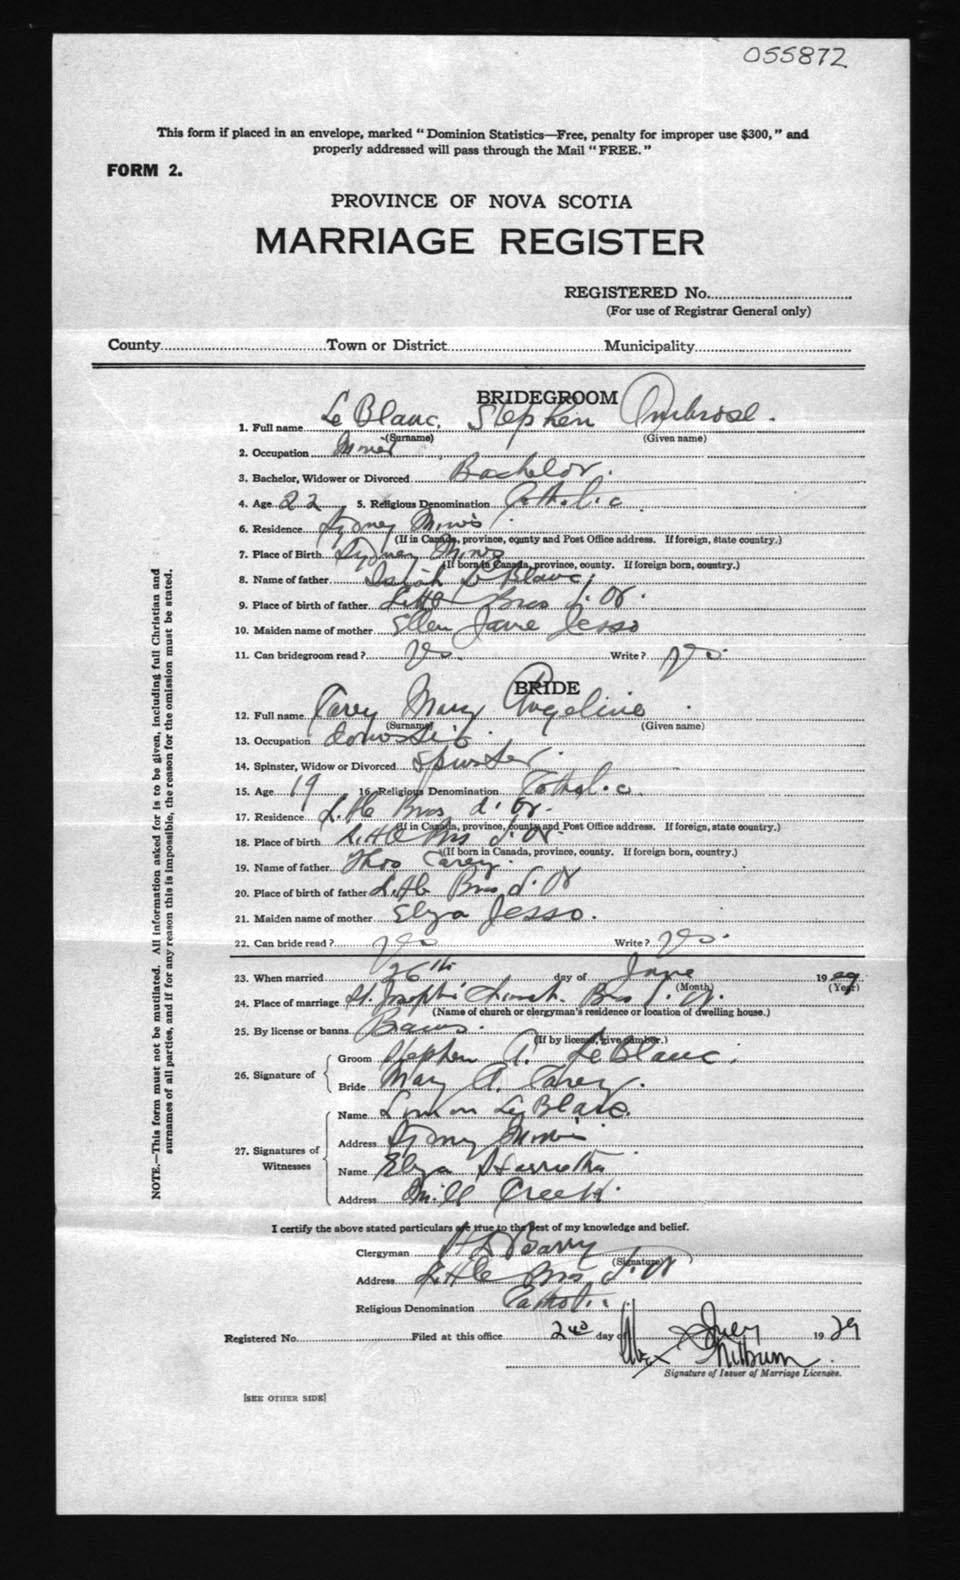 055872
This form if placed in an envelope, marked "Dominion Statistics—Free, penalty for improper use $300," and
properly addressed will pass through the Mail "FREE."
FORM 2.
PROVINCE OF NOVA SCOTIA
MARRIAGE REGISTER
REGISTERED No.
(For use of Registrar General only)
County Town or District Municipality
BRIDEGROOM
1. Full name Le Blanc, Stephen Ambrose.
(Surname) (Given name)
2. Occupation Miner
3. Bachelor, Widower or Divorced Bachelor.
4. Age 22 5. Religious Denomination Catholic
6. Residence Sydney Mines
(If in Canada, province, county and Post Office address. If foreign, state country.)
7. Place of Birth Sydney Mines
(If born in Canada, province, county. If foreign born, country.)
8. Name of father Isiah Le Blanc
9. Place of birth of father Little Bras d'Or.
10. Maiden name of mother Ellen Jane Jesso
11. Can bridegroom read? Yes. Write? Yes.
BRIDE
12. Full name Carey Mary Angeline
(Surname) (Given name)
13. Occupation domestic
14. Spinster, Widow or Divorced Spinster.
15. Age 19 16. Religious Denomination Catholic
17. Residence Little Bras d'Or.
(If in Canada, province, county and Post Office address. If foreign, state country.)
18. Place of birth Little Bras d'Or
(If born in Canada, province, county. If foreign born, country.)
19. Name of father Thos Carey.
20. Place of birth of father Little Bras d'Or
21. Maiden name of mother Elza Jesso.
22. Can bride read? Yes Write? Yes.
23. When married 26th day of June 1929
(Month) (Year)
24. Place of marriage St. Joseph's Church. Bras d'Or.
(Name of church or clergyman's residence or location of dwelling house.)
25. By license or banns Banns.
(If by license, give number.)
26. Signature of
Groom Stephen A. LeBlanc.
Bride Mary A. Carey.
27. Signatures of Witnesses
Name Le Blanc.
Address Sydney Mines
Name Elza
Address Mill Creek.
I certify the above stated particulars are true to the best of my knowledge and belief.
Clergyman Barry
(Signature)
Address Little Bras d'Or
Religious Denomination Catholic
Registered No. Filed at this office 2nd day of July 1929
Alex
Signature of Issuer of Marriage Licenses.
[SEE OTHER SIDE]
NOTE.—This form must not be mutilated. All information asked for is to be given, including full Christian and
surnames of all parties, and if for any reason this is impossible, the reason for the omission must be stated.